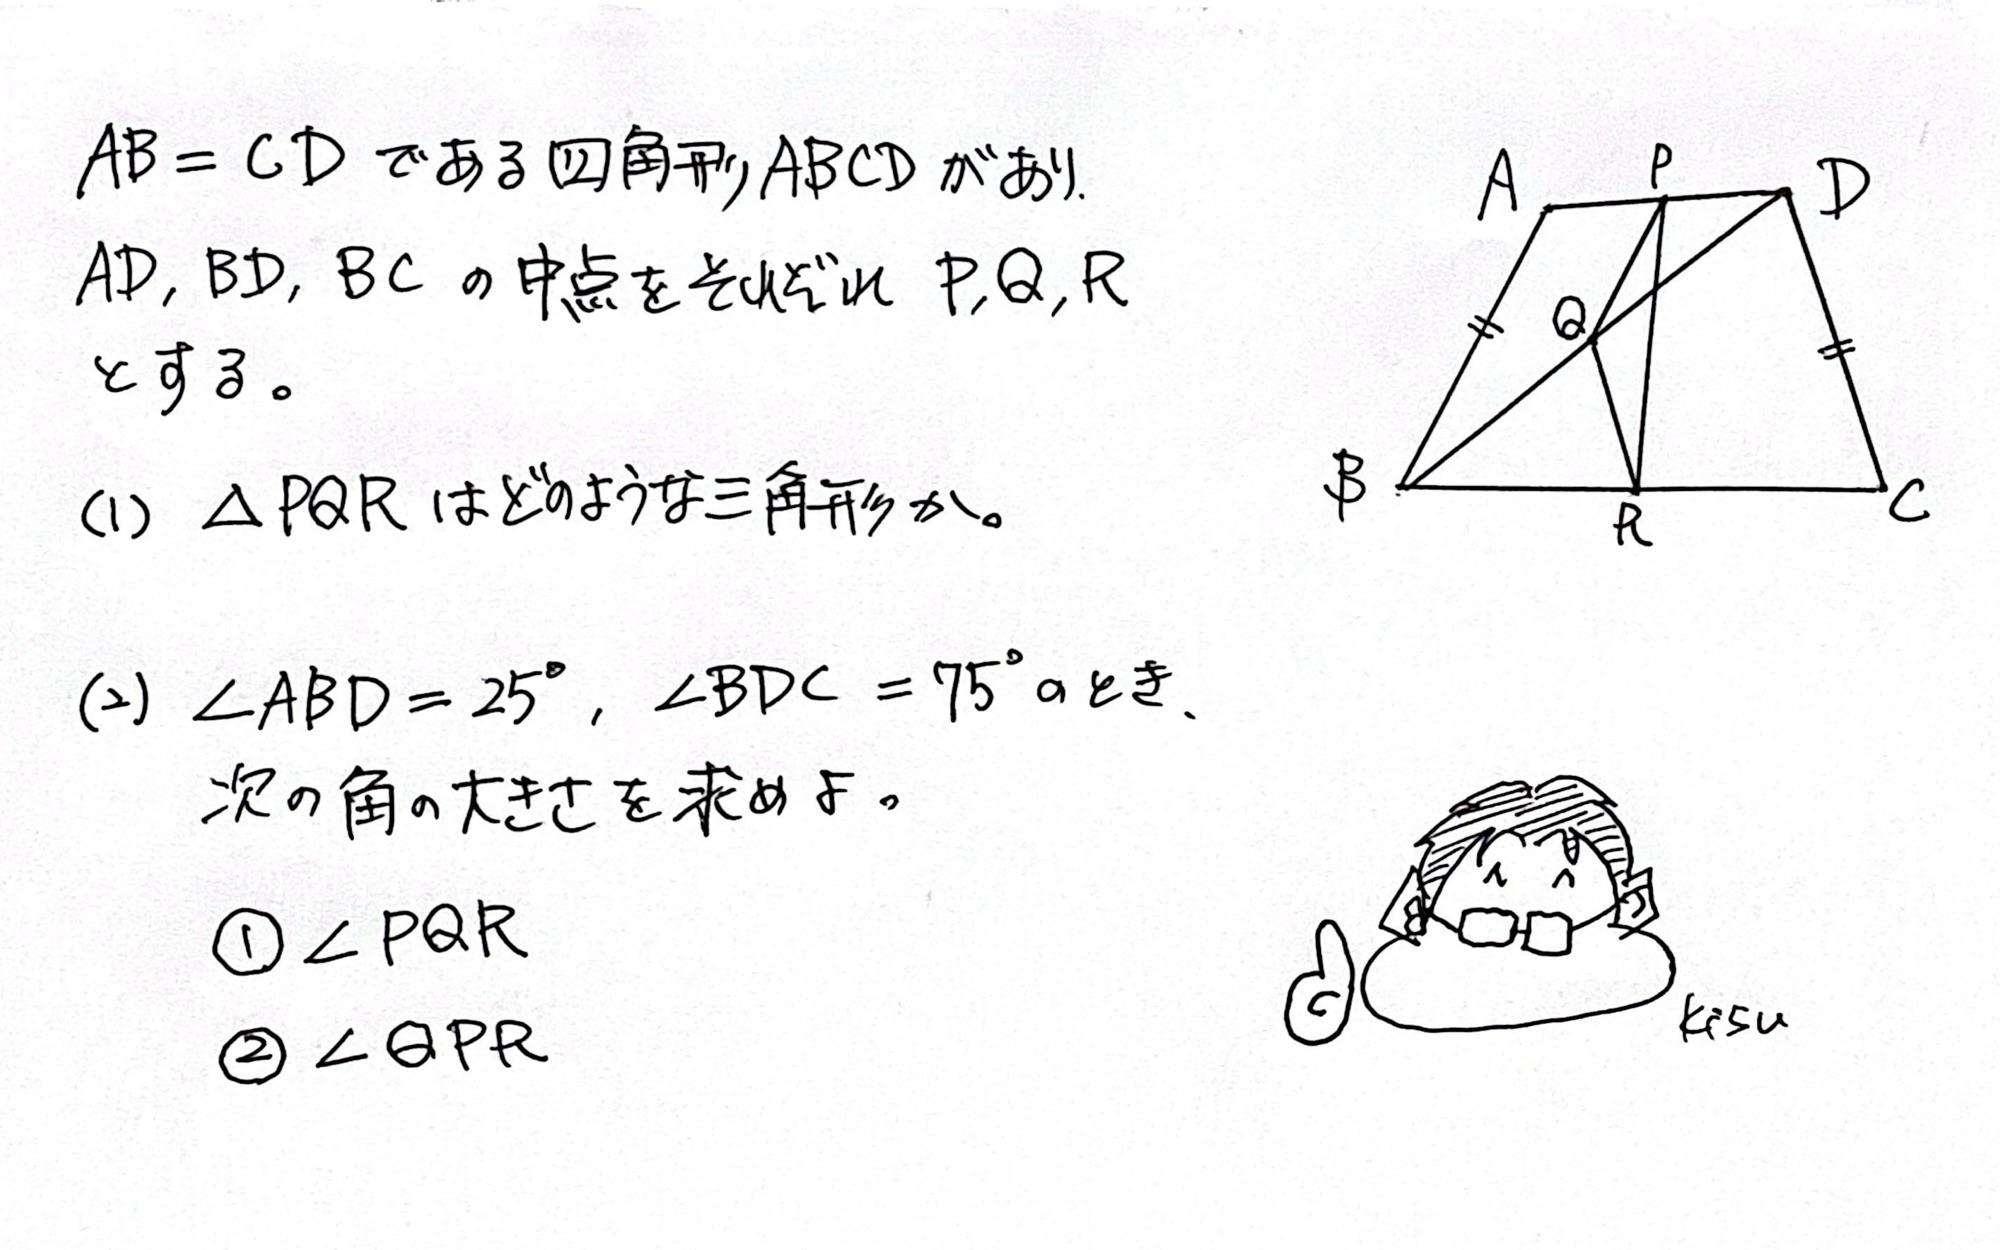 AB = CD である四角形ABCDがあり、
AD, BD, BC の中点をそれぞれ P, Q, R
とする。
(1) △PQR はどのような三角形か。
(2) ∠ABD = 25°, ∠BDC = 75° のとき、
次の角の大きさを求めよ。
① ∠PQR
② ∠QPR
A
P
D
Q
B
R
C
kisu